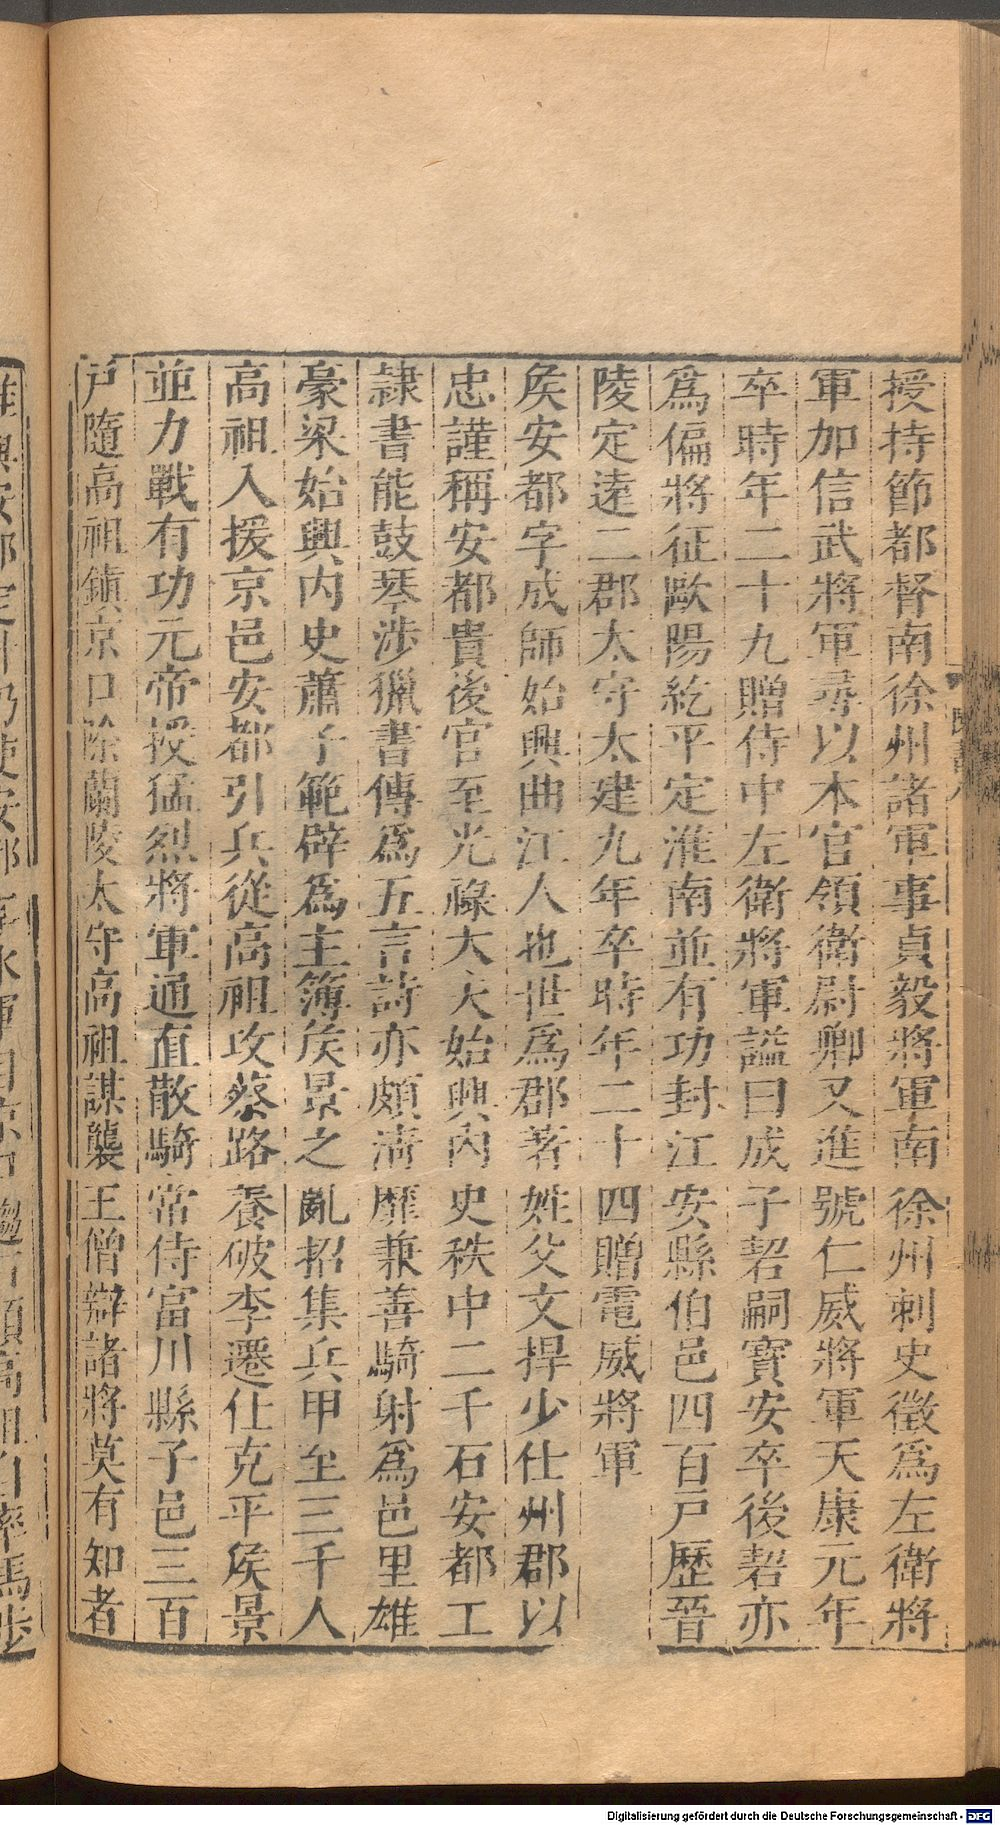 授持節都督南徐州諸軍事貞毅將軍南徐州刺史徵爲左衛將
軍加信武將軍尋以本官領衛尉卿又進號仁威將軍天康元年
卒時年二十九贈侍中左衛將軍謚曰成子䂮嗣寶安卒後䂮亦
爲偏將征歐陽紇平定淮南並有功封江安縣伯邑四百戸歷晉
陵定遠二郡太守太建九年卒時年二十四贈電威將軍
侯安都字成師始興曲江人也世爲郡著姓父文捍少仕州郡以
忠謹稱安都貴後官至光祿大夫始興内史秩中二千石安都工
隷書能鼓琴涉獵書傳爲五言詩亦頗淸靡兼善騎射爲邑里雄
豪梁始興内史蕭子範辟爲主簿侯景之亂招集兵甲至三千人
高祖入援京邑安都引兵從高祖攻蔡路養破李遷仕克平侯景
並力戰有功元帝授猛烈將軍通直散騎常侍富川縣子邑三百
戸隨高祖鎭京口除蘭陵太守高祖謀襲王僧辯諸將莫有知者
Digitalisierung gefördert durch die Deutsche Forschungsgemeinschaft - DFG